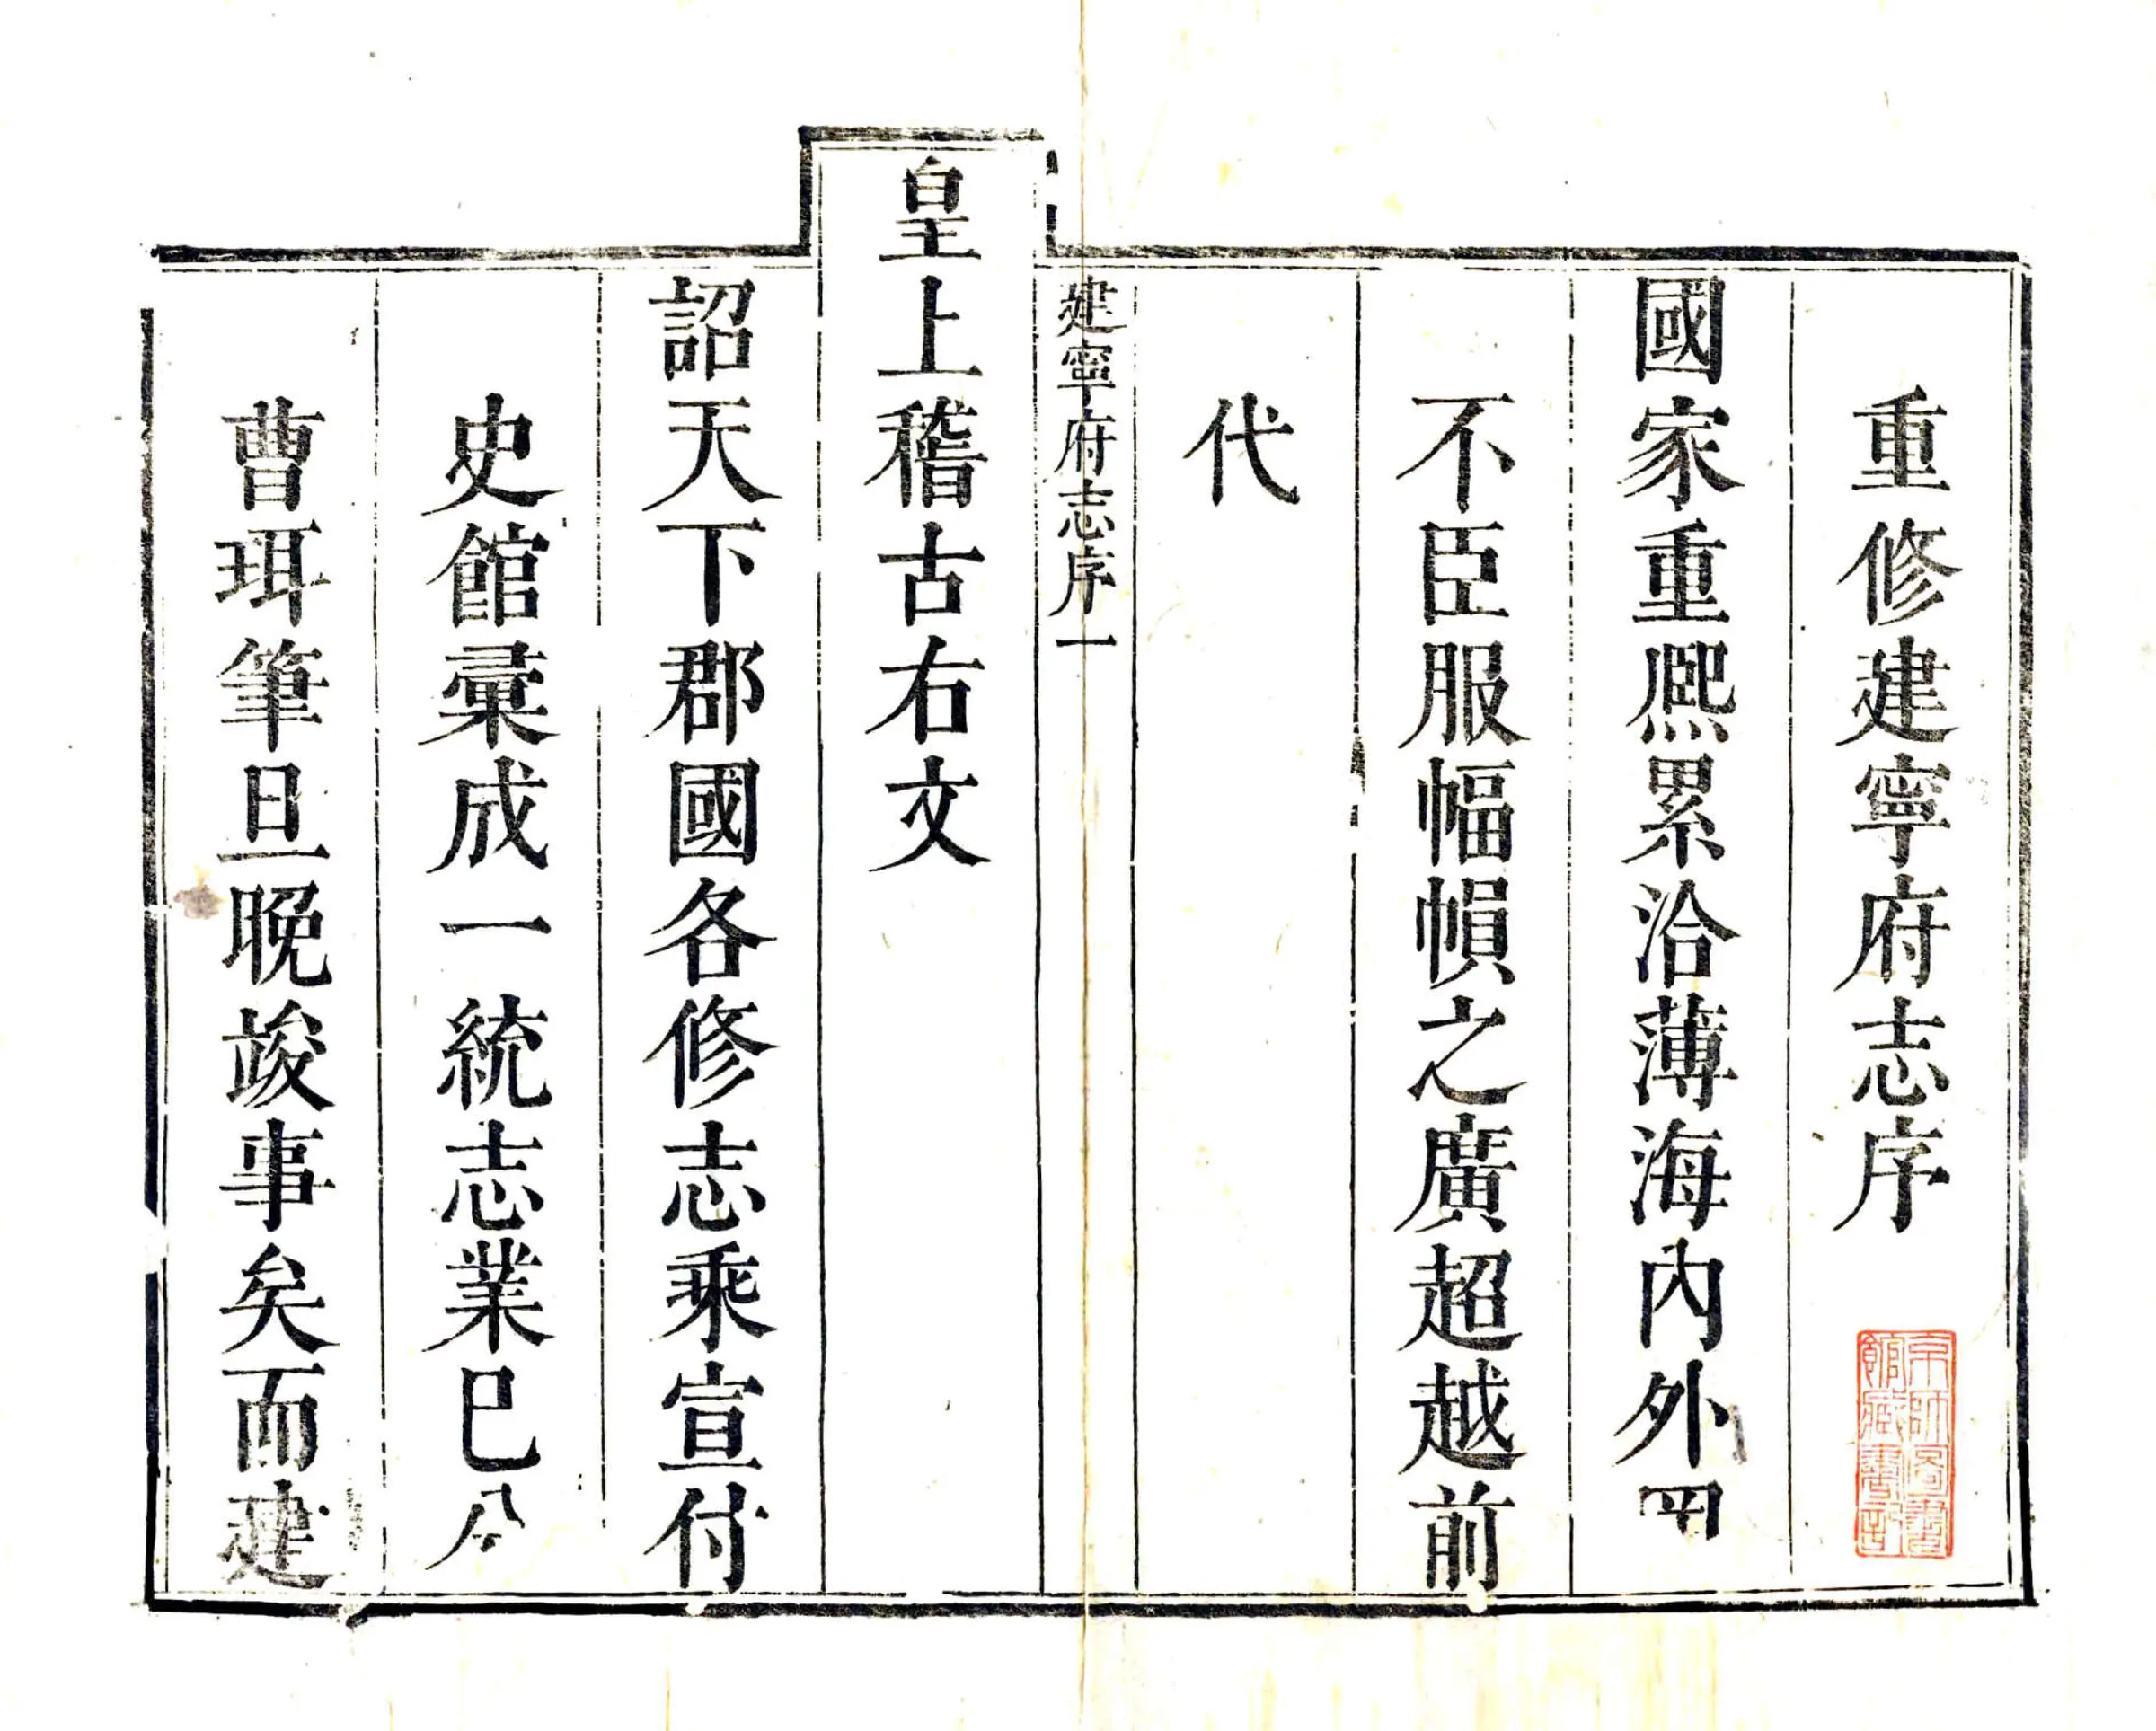 重修建寧府志序
國家重熈累洽薄海內外罔
不臣服幅幀之廣超越前
代
建寧府志序 一
皇上稽古右文
詔天下郡國各修志乘宣付
史館彙成一統志業已分
曹珥筆旦晚竣事矣而建
京師圖書
館藏書記